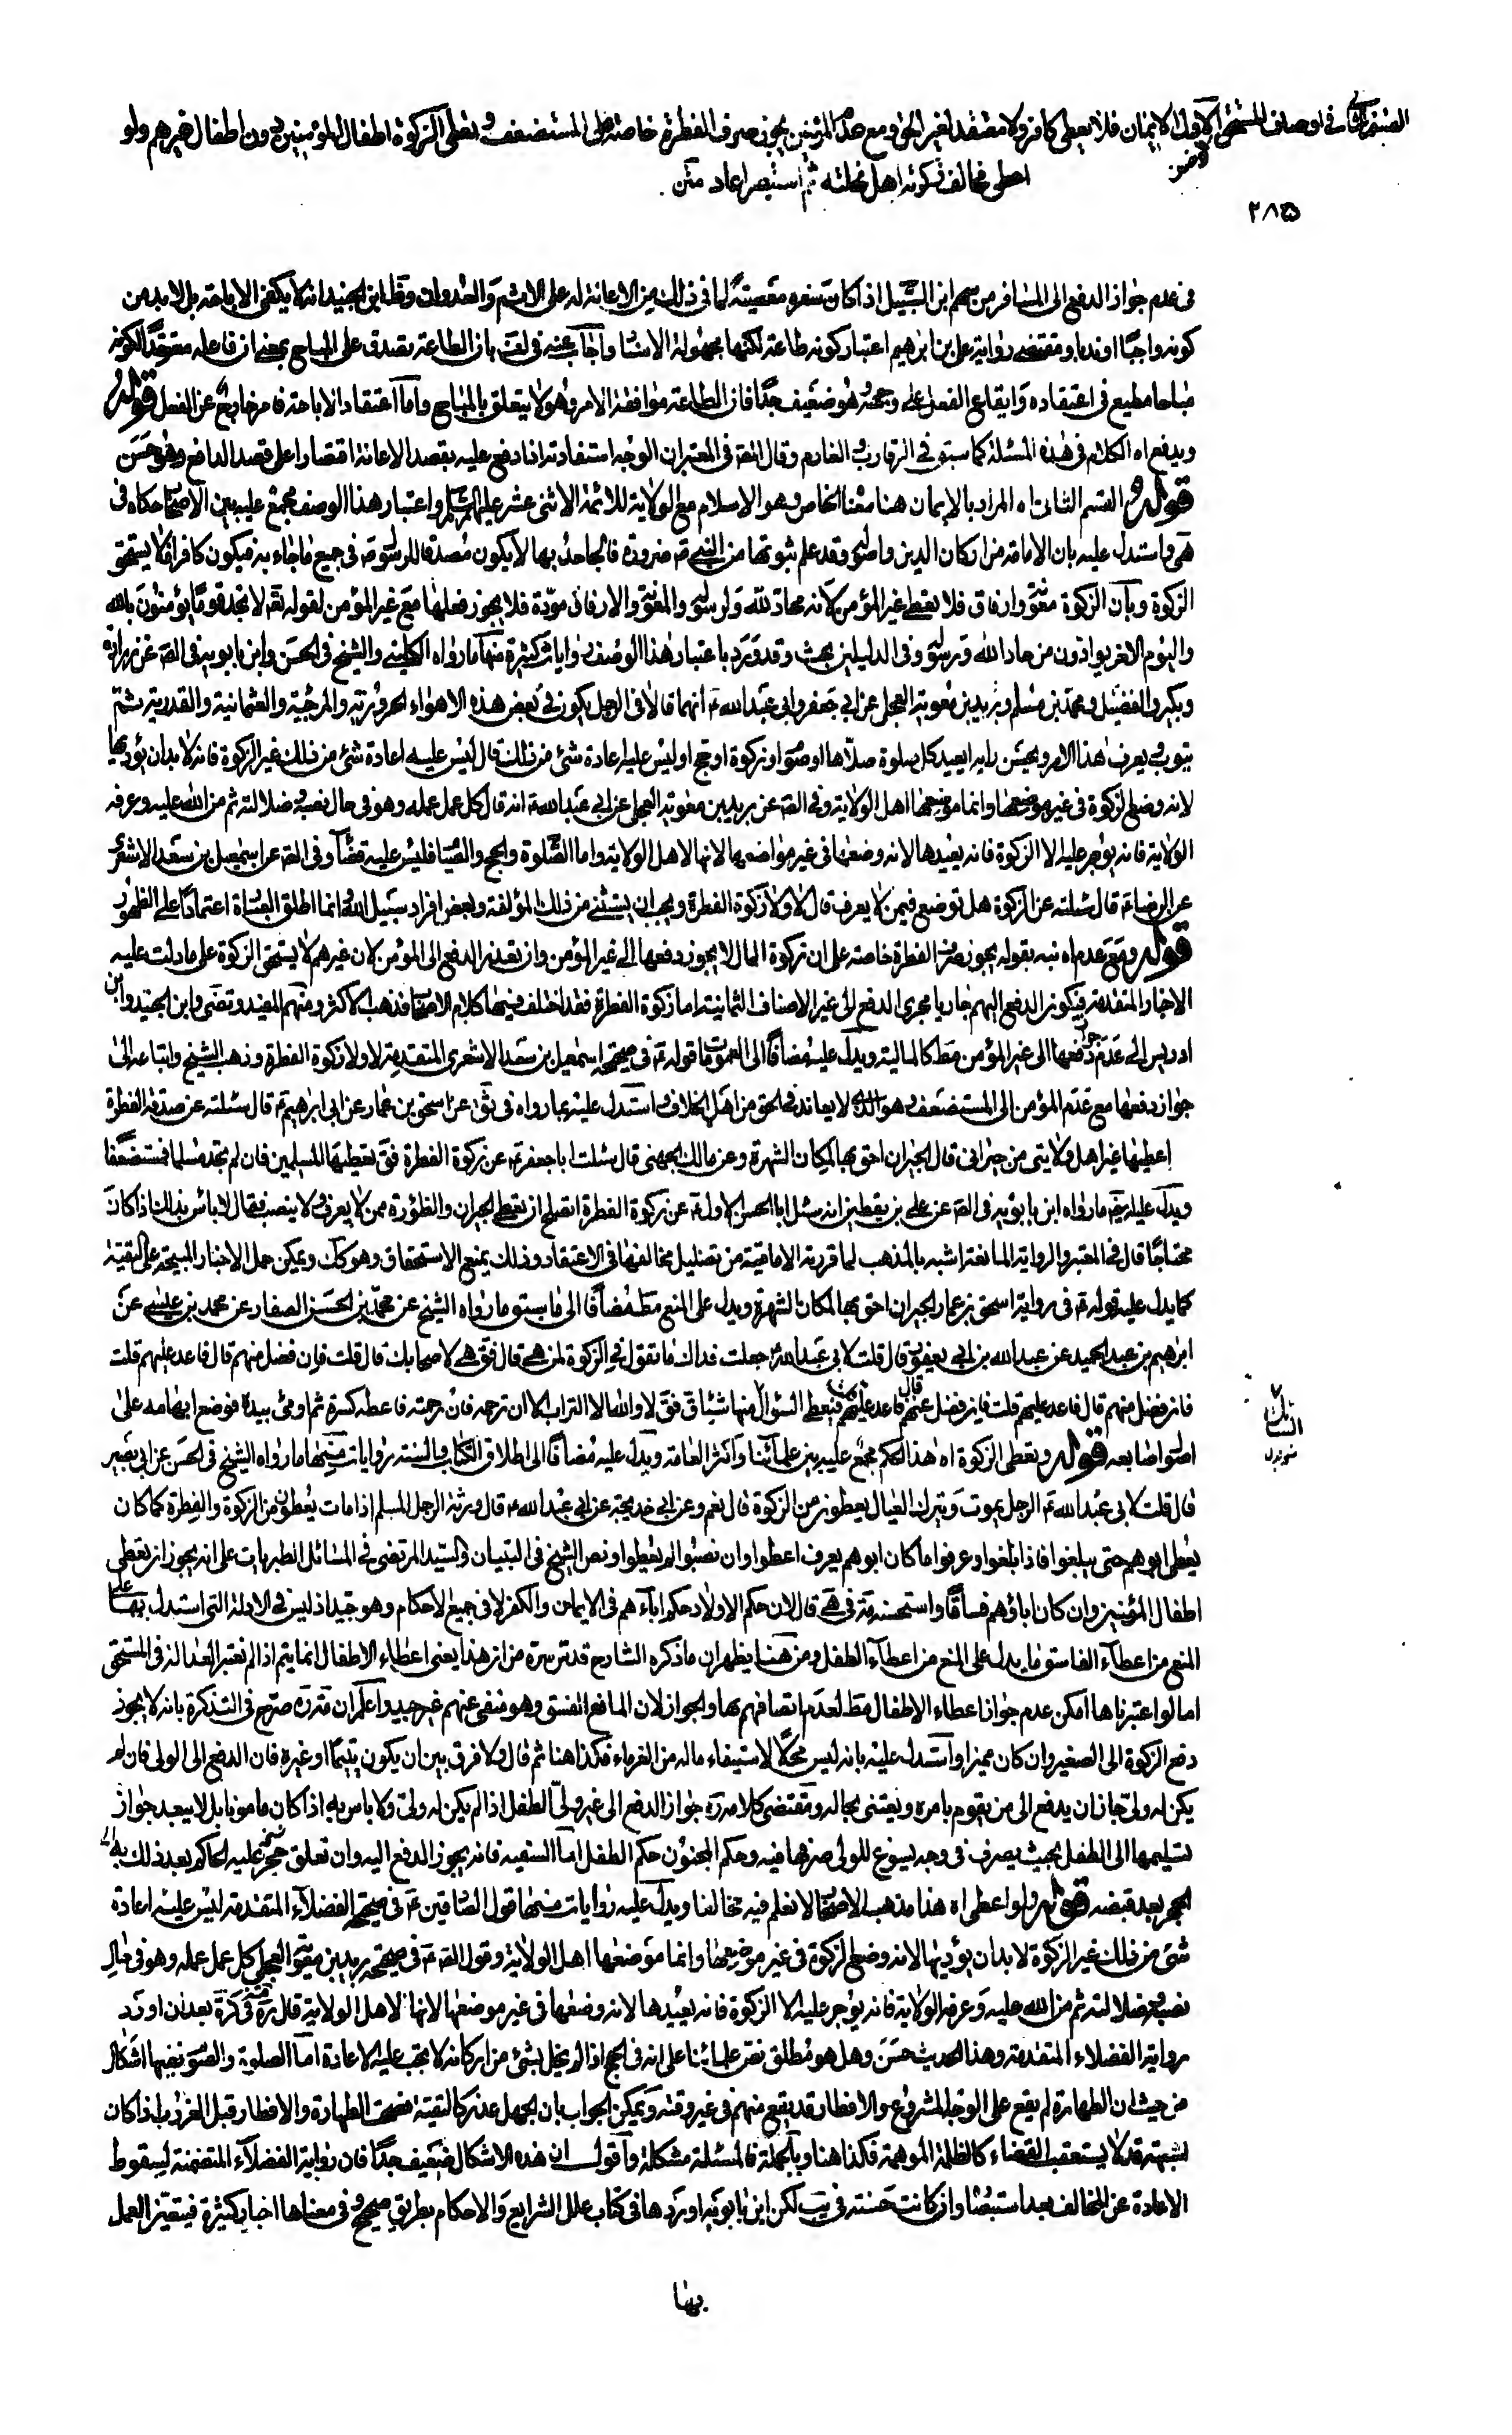 القسم الثاني في اوصاف المستحق الاول الايمان فلا يعطى كافر ولا معتقد لغير الحق ومع عدم المؤمنين يجوز صرف الفطرة خاصة الى المستضعف وتعطى الزكوة اطفال المؤمنين دون اطفال غيرهم ولو
اعطى مخالف زكوته اهل نحلته ثم استبصر اعاد متن
٢٨٥
فى عدم جواز الدفع الى المسافر من سهم ابن السبيل اذا كان سفره معصية لما فى ذلك من الاعانة له على الاثم والعدوان ونقل ابن الجنيد انه لا يكفى الاباحة بل لا بد من
كونه واجبا او ندبا ومقتضى رواية على بن ابراهيم اعتبار كونه طاعة لكنها مجهولة الاسناد واجاب عنه فى لف بان الطاعة تصدق على المباح بمعنى ان فاعله معتقدا لكونه
مباحا مطيع فى اعتقاده وايقاع الفعل على وجهه وهو ضعيف جدا فان الطاعة موافقة الامر وهو لا يتعلق بالمباح واما اعتقاد الاباحة فامر خارج عن الفعل قوله
ويدفع اه الكلام فى هذه المسئلة كما سبق فى الرقاب والغارم وقال المصنف فى المعتبر ان الوجه استفادته اذا دفع عليه بقصد الاعانة اقتصارا على قصد الدافع وهو حسن
قوله القسم الثانى اه المراد بالايمان هنا معناه الخاص وهو الاسلام مع الولاية للائمة الاثنى عشر عليهم السلام واعتبار هذا الوصف مجمع عليه بين الاصحاب حكاه فى
هى واستدل عليه بان الامامة من اركان الدين واصوله وقد علم ثبوتها من النبى ص ضرورة فالجاحد بها لا يكون مصدقا للرسول ص فى جميع ما جاء به فيكون كافرا فلا يستحق
الزكوة وبان الزكوة معونة وارفاق فلا يعطى غير المؤمن لانه محاد لله ولرسوله والمعونة والارفاق مودة فلا يجوز فعلها مع غير المؤمن لقوله تعم لا تجد قوما يؤمنون بالله
واليوم الاخر يوادون من حاد الله ورسوله وفى الدليلين بحث وقد ورد باعتبار هذا الوصف روايات كثيرة منها ما رواه الكلينى والشيخ فى الحسن وابن بابويه فى الصه عن زرارة
وبكير والفضيل ومحمد بن مسلم وبريد بن معوية العجلى عن ابى جعفر وابى عبد الله ع انهما قالا فى الرجل يكون فى بعض هذه الاهواء الحرورية والمرجئة والعثمانية والقدرية ثم
يتوب ويعرف هذا الامر ويحسن رايه ايعيد كل صلوة صلاها او صوم او زكوة او حج او ليس عليه اعادة شئ من ذلك قال ليس عليه اعادة شئ من ذلك غير الزكوة فانه لا بد ان يؤديها
لانه وضع الزكوة فى غير موضعها وانما موضعها اهل الولاية وفى الصه عن بريد بن معوية العجلى عن ابى عبد الله ع انه قال كل عمل عمله وهو فى حال نصبه وضلالته ثم من الله عليه وعرفه
الولاية فانه يوجر عليه الا الزكوة فانه يعيدها لانه وضعها فى غير مواضعها لانها لاهل الولاية واما الصلوة والحج والصيام فليس عليه قضاء وفى الصه عن اسمعيل بن سعد الاشعرى
عن الرضا ع قال سئلته عن الزكوة هل توضع فيمن لا يعرف قال لا ولا زكوة الفطرة ويجب ان يستثنى من ذلك المؤلفة وبعض افراد سبيل الله وانما اطلق العبارة اعتمادا على الظهور
قوله ومع عدم اه نبه بقوله يجوز صرف الفطرة خاصة على ان زكوة المال لا يجوز دفعها الى غير المؤمن وان تعذر الدفع الى المؤمن لان غيرهم لا يستحق الزكوة على ما دلت عليه
الاخبار المتقدمة فيكون الدفع اليهم جاريا مجرى الدفع الى غير الاصناف الثمانية اما زكوة الفطرة فقد اختلف فيها كلام الاصحاب فذهب الاكثر ومنهم المفيد وتضى وابن الجنيد وابن
ادريس الى عدم جواز دفعها الى غير المؤمن مط كالمالية ويدل عليه مضافا الى العمومات قوله ع فى صحيحة اسمعيل بن سعد الاشعرى المتقدمة لا ولا زكوة الفطرة وذهب الشيخ واتباعه الى
جواز دفعها مع عدم المؤمن الى المستضعف وهو الذى لا يعاند فى الحق من اهل الخلاف واستدل عليه بما رواه فى ثق عن اسحق بن عمار عن ابى ابرهيم ع قال سئلته عن صدقة الفطرة
اعطيها غير اهل ولايتى من جيرانى قال الجيران احق بها لمكان الشهرة وعن مالك الجهنى قال سئلت ابا جعفر ع عن زكوة الفطرة فق تعطيها المسلمين فان لم تجد مسلما فمستضعفا
ويدل عليه ايضا ما رواه ابن بابويه فى الصه عن على بن يقطين انه سئل ابا الحسن الاول ع عن زكوة الفطرة ايصلح ان تعطى الجيران والظؤرة ممن لا يعرف ولا ينصب فقال لا باس بذلك اذا كان
محتاجا قال فى المعتبر والرواية المانعة اشبه بالمذهب لما قررته الامامية من تضليل مخالفها فى الاعتقاد وذلك يمنع الاستحقاق وهو كك ويمكن حمل الاخبار المبيحة على التقية
كما يدل عليه قوله ع فى رواية اسحق بن عمار الجيران احق بها لمكان الشهرة ويدل على المنع مط مضافا الى ما سبق ما رواه الشيخ عن محمد بن الحسن الصفار عن محمد بن عيسى عن
ابراهيم بن عبد الحميد عن عبد الله بن ابى يعفور قال قلت لابى عبد الله ع جعلت فداك ما تقول فى الزكوة لمن هى قال فق هى لاصحابك قال قلت فان فضل منهم قال فاعد عليهم قلت
فان فضل منهم قال فاعد عليهم قلت فان فضل عنهم قال فاعد عليهم قلت فيعطى السؤال منها شيئا ق فق لا والله الا التراب الا ان ترحمه فان رحمته فاعطه كسرة ثم اومى بيده فوضع ابهامه على
اصول اصابعه قوله وتعطى الزكوة اه هذا الحكم مجمع عليه بين علمائنا واكثر العامة ويدل عليه مضافا الى اطلاق الكتاب والسنة روايات منها ما رواه الشيخ فى الحسن عن ابى بصير
قال قلت لابى عبد الله ع الرجل يموت ويترك العيال يعطون من الزكوة قال نعم وعن ابى خديجة عن ابى عبد الله ع قال ذرية الرجل المسلم اذا مات يعطون من الزكوة والفطرة كما كان
يعطى ابوهم حتى يبلغوا فاذا بلغوا وعرفوا ما كان ابوهم يعرف اعطوا وان نصبوا لم يعطوا ونص الشيخ فى التبيان والسيد المرتضى فى المسائل الطبريات على انه يجوز ان يعطى
اطفال المؤمنين وان كان اباؤهم فساقا واستحسنه فى هى قال لان حكم الاولاد حكم اباءهم فى الايمان والكفر لا فى جميع الاحكام وهو جيد اذ ليس فى الادلة التى استدل بها على
المنع من اعطاء الفاسق ما يدل على المنع من اعطاء الطفل ومن هنا يظهر ان ما ذكره الشارح قدس سره من ان هذا يعنى اعطاء الاطفال انما يتم اذا لم نعتبر العدالة فى المستحق
اما لو اعتبرناها امكن عدم جواز اعطاء الاطفال مط لعدم اتصافهم بها والجواز لان المانع الفسق وهو منفى عنهم غير جيد واعلم ان صرح فى التذكرة بانه لا يجوز
دفع الزكوة الى الصغير وان كان مميزا واستدل عليه بانه ليس محلا لاستيفاء ماله من الغرماء فكذا هنا ثم قال ولا فرق بين ان يكون يتيما او غيره فان الدفع الى الولى فان لم
يكن له ولى جاز ان يدفع الى من يقوم بامره ويعتنى بحاله ومقتضى كلامه ره جواز الدفع الى غير ولى الطفل اذا لم يكن له ولى ولا باس به اذا كان مامونا بل لا يبعد جواز
تسليمها الى الطفل بحيث يصرف فى وجه يسوغ للولى صرفها فيه وحكم المجنون حكم الطفل اما السفيه فانه يجوز الدفع اليه وان تعلق حجر عليه الحاكم بعد ذلك به
الحجر بعد قبضه قوله ولو اعطى اه هذا مذهب الاصحاب لا نعلم فيه مخالفا ويدل عليه روايات منها قول الصادقين ع فى صحيحة الفضلاء المتقدمة ليس عليه اعادة
شئ من ذلك غير الزكوة لا بد ان يؤديها لانه وضع الزكوة فى غير موضعها وانما موضعها اهل الولاية وقول الصه ع فى صحيحة بريد بن معوية العجلى كل عمل عمله وهو فى حال
نصبه وضلالته ثم من الله عليه وعرفه الولاية فانه يوجر عليه الا الزكوة فانه يعيدها لانه وضعها فى غير موضعها لانها لاهل الولاية قال ره فى كرة بعد ان اورد
رواية الفضلاء المتقدمة وهذا الحديث حسن وهل هو مطلق نص علمائنا على انه فى الحج اذا لم يخل بشئ من اركانه لا يجب عليه الاعادة اما الصلوة والصوم ففيها اشكال
من حيث ان الطهارة لم يقع على الوجه المشروع والافطار قد يقع منهم فى غير وقته ويمكن الجواب بان الجهل عذر كالتقية فصحت الطهارة والافطار قبل الغروب اذا كان
لشبهة قد لا يستعقب القضاء كالظلمة الموهمة فكذا هنا وبالجملة فالمسئلة مشكلة واقول ان هذه الاشكال ضعيف جدا فان رواية الفضلاء المتضمنة لسقوط
الاعادة عن المخالف بعد استبصاره وان كانت حسنة فى يب لكن ابن بابويه اوردها فى كتاب علل الشرايع والاحكام بطريق صحيح وفى معناها اخبار كثيرة فيتعين العمل
بها